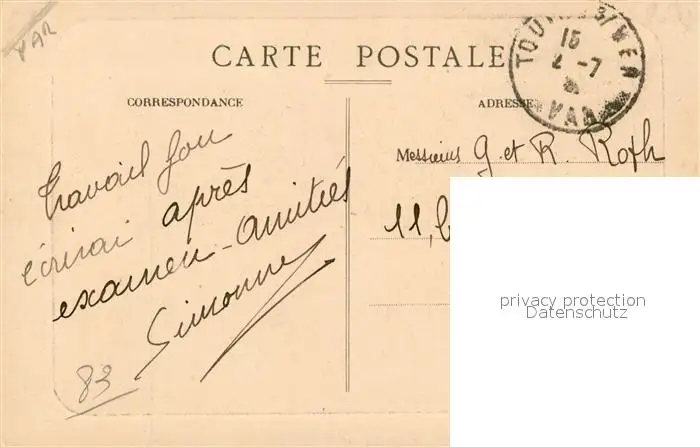 VAR
CARTE POSTALE
CORRESPONDANCE
ADRESSE
15
2 -7
VAR
Travail fou
écrirai après
examen - Amitiés
Simonne
83
Messieurs G. et R. Roth
11,
privacy protection
Datenschutz